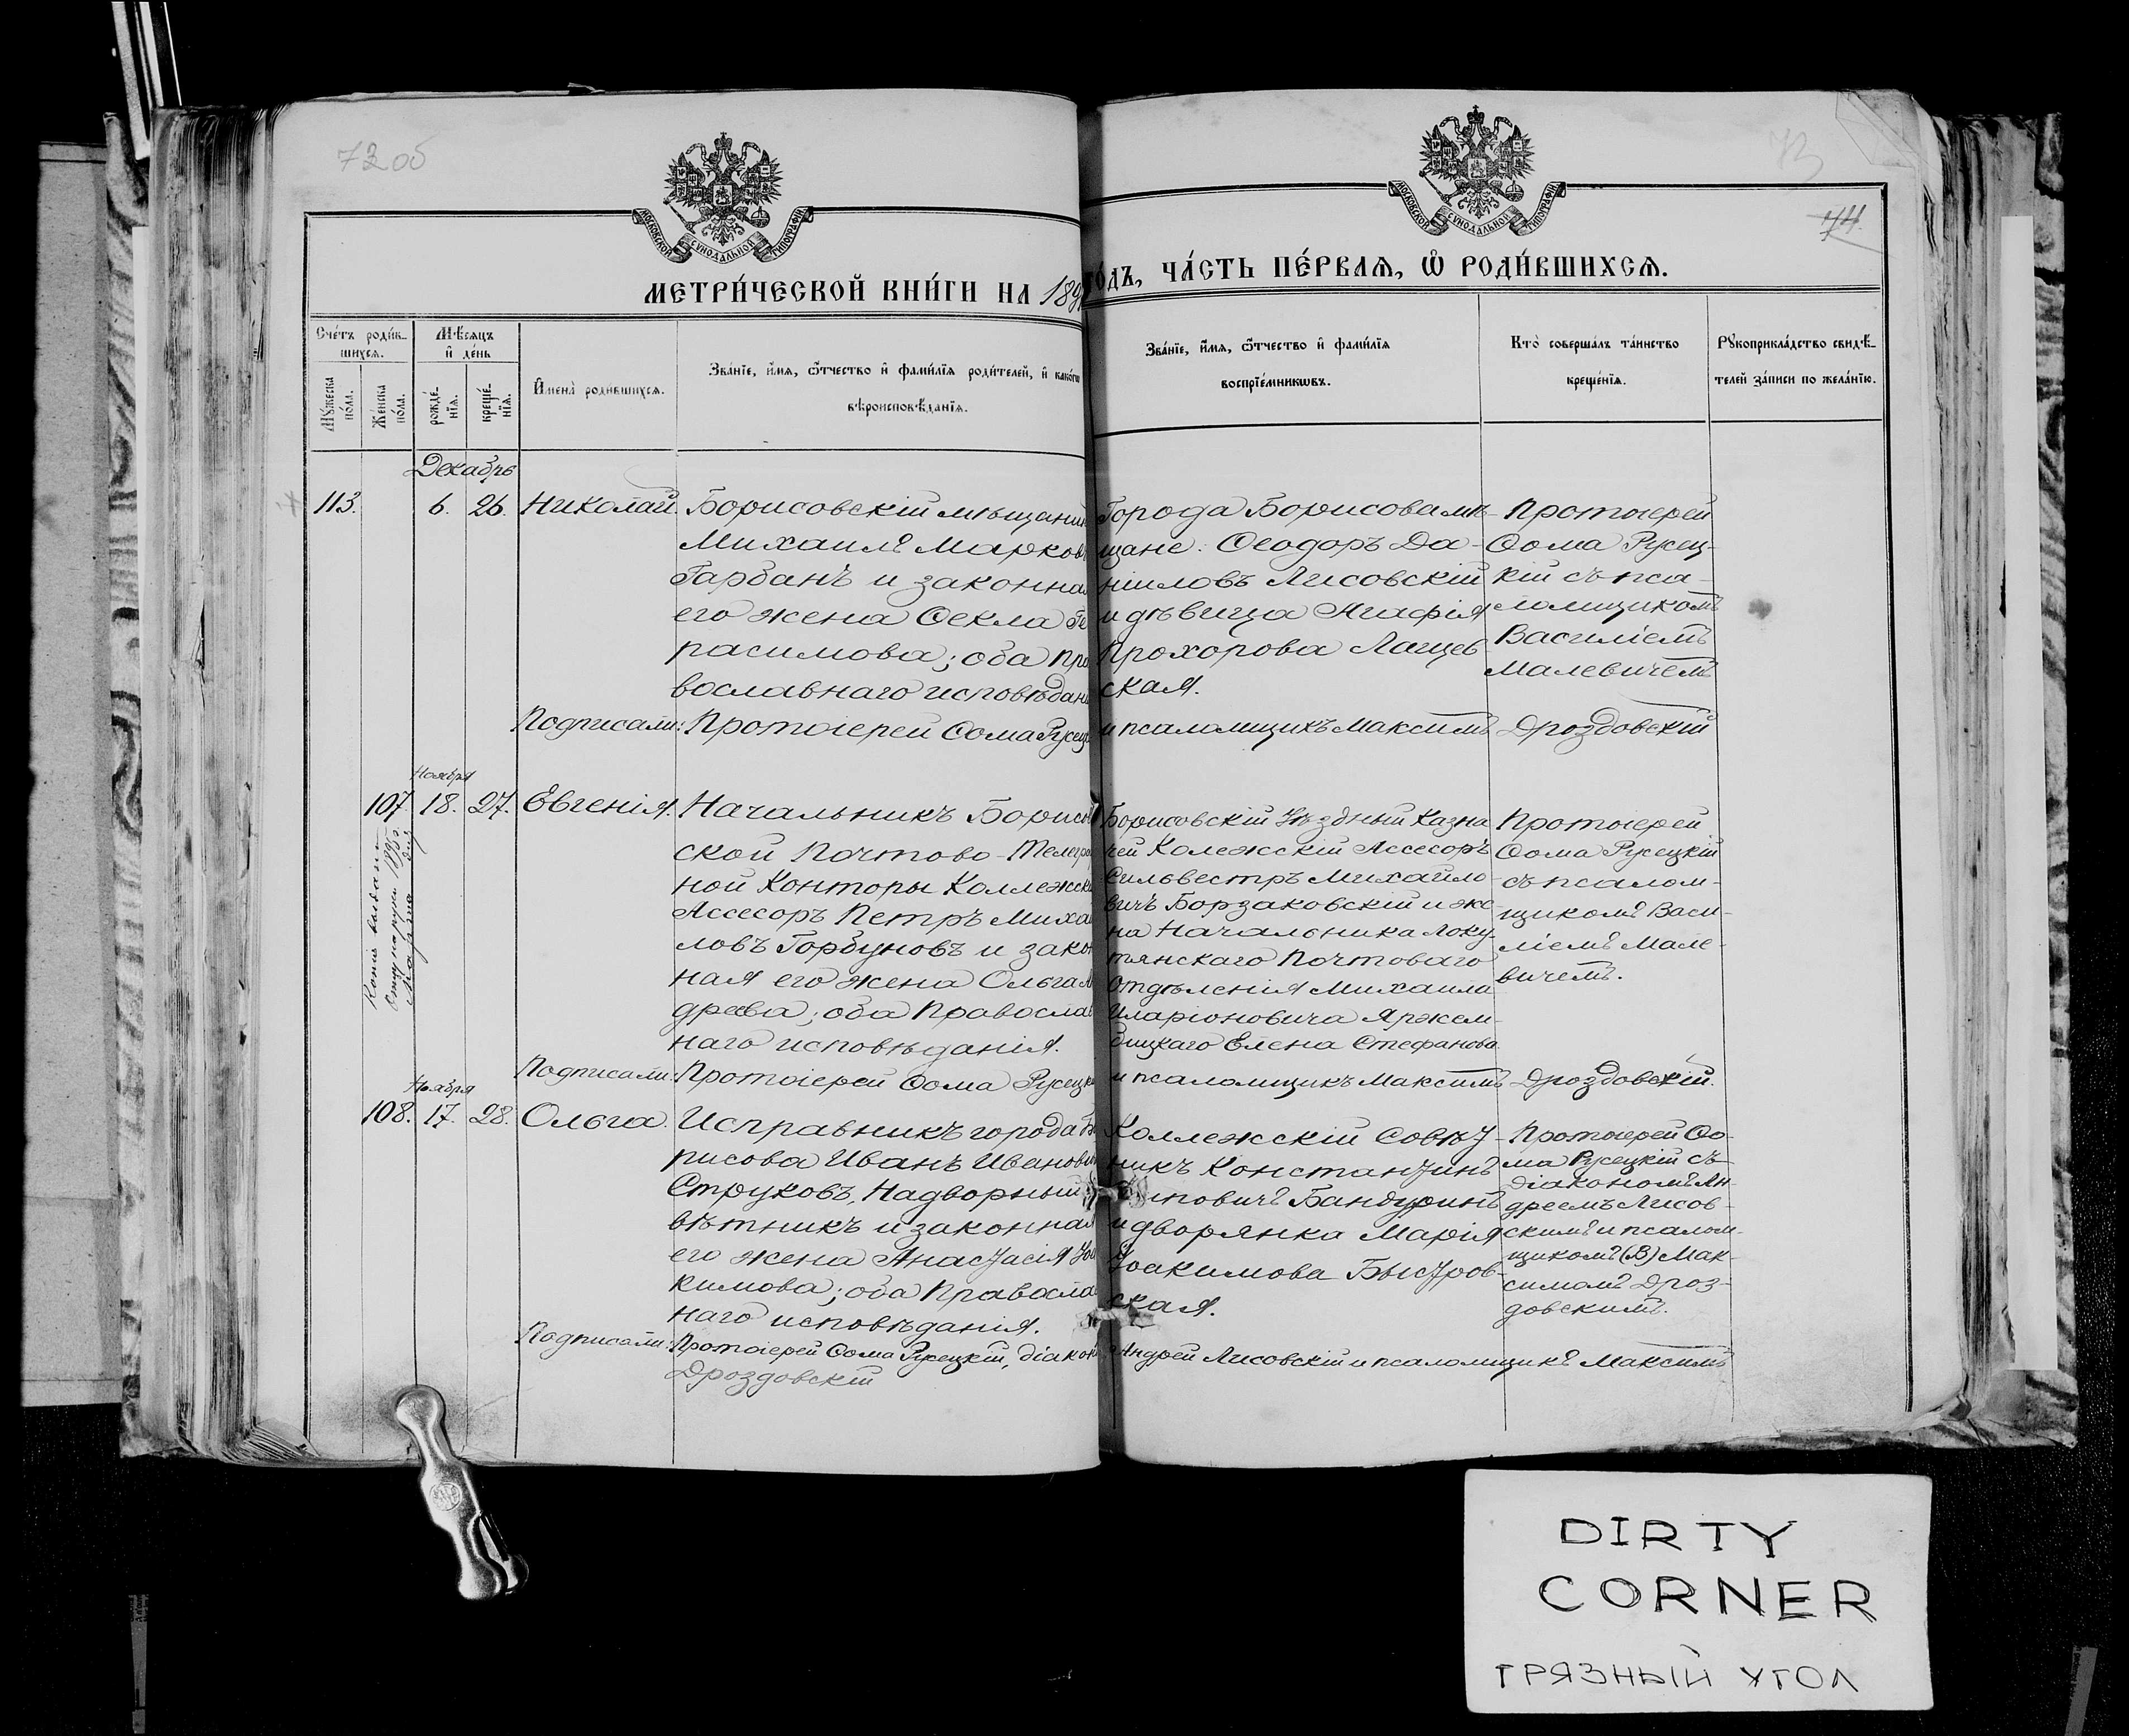 72 об
73
74.
МОСКОВСКОЙ СѴНОДАЛЬНОЙ ТИПОГРАФІИ
МОСКОВСКОЙ СѴНОДАЛЬНОЙ ТИПОГРАФІИ
МЕТРИ́ЧЕСКОЙ КНИ́ГИ НА 189
ГО́ДЪ, ЧА́СТЬ ПЕ́РВАѦ, Ѽ РОДИ́ВШИХСѦ.
Сче́тъ роди́в-
шихсѧ.
Мꙋ́жеска
по́ла.
Же́нска
по́ла.
Мѣ́сѧцъ
и҆ де́нь
рожде́-
нїѧ.
креще́-
нїѧ.
И҆мена̀ роди́вшихсѧ.
Зва́нїе, и҆́мѧ, ѻ҆́тчество и҆ фами́лїѧ роди́телей, и҆ како́гѡ
вѣроисповѣ́данїѧ.
Зва́нїе, и҆́мѧ, ѻ҆́тчество и҆ фами́лїѧ
воспрїе́мникѡвъ.
Кто̀ соверша́лъ та́инство
креще́нїѧ.
Рꙋкоприкла́дство свидѣ́-
телей за́писи по жела́нїю.
Декабрь
113. 6. 26. Николай.
Борисовскій мѣщанин
Михаилъ Марков
Гарбанъ и законна
его жена Ѳекла Ге
расимова; оба пра
вославнаго исповѣдан
Города Борисова мѣ-
щане: Ѳеодоръ Да-
ніиловъ Лисовскій
и дѣвица Агафія
Прохорова Лагцев
ская.
Протоіерей
Ѳома Русец-
кій съ пса-
ломщикомъ
Василіемъ
Малевичемъ
Подписали: Протоіерей Ѳома Русецк и псаломщикъ Максимъ Дроздовскій
Ноября
107. 18. 27. Евгенія.
Копія выдана
1895
Марта
Начальникъ Борисов
ской Почтово-Телегра
ной Конторы Коллежскі
Ассесоръ Петръ Михаи
ловъ Горбуновъ и закон
ная его жена Ольга А
дреева; оба Православ
наго исповѣданія.
Борисовскій Уѣздный Казна
чей Колежскій Ассесоръ
Сильвестръ Михайло-
вичъ Борзаковскій и же-
на Начальника Локу-
тянскаго Почтоваго
Отдѣленія Михаила
Иларіоновича Яржем-
бицкаго Елена Стефанова.
Протоіерей
Ѳома Русецкій
съ псалом-
щикомъ Васи-
ліемъ Мале-
вичемъ.
Подписали: Протоіерей Ѳома Русецкі и псаломщикъ Максимъ Дроздовскій.
Ноября
108. 17. 28. Ольга.
Исправникъ города Бо
рисова Иванъ Иванович
Струковъ, Надворный
вѣтникъ и законная
его жена Анастасія Іоа
кимова; оба Православ
наго исповѣданія.
Коллежскій Совѣт-
никъ Константинъ
иповичъ Бандуринъ
и дворянка Марія
Іоакимова Быстров-
ская.
Протоіерей Ѳо-
ма Русецкій съ
діакономъ Ан-
дреемъ Лисов-
скимъ и псалом-
щикомъ (В) Мак-
симомъ Дроз-
довскимъ.
Подписали: Протоіерей Ѳома Русецкій, діакон Андрей Лисовскій и псаломщикъ Максимъ
Дроздовскій
DIRTY
CORNER
ГРЯЗНЫЙ УГОЛ